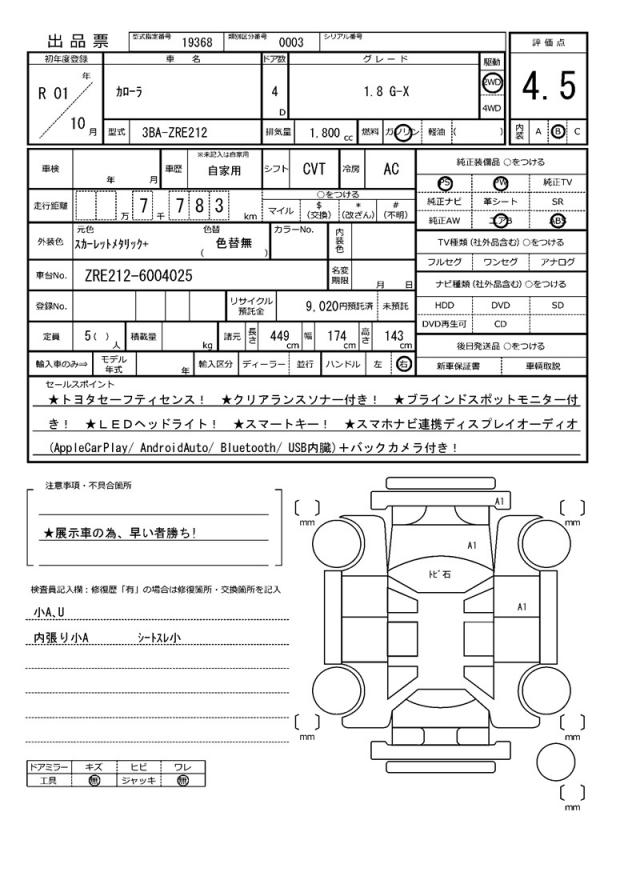 出品票 型式指定番号 19368 類別区分番号 0003 シリアル番号
評価点
4.5
内装 A B C
初年度登録 車名 ドア数 グレード 駆動
R 01 年 10 月 カローラ 4 D 1.8 G-X 2WD 4WD
型式 3BA-ZRE212 排気量 1.800 cc 燃料 ガソリン 軽油 ( )
車検 年 月 車歴 ※未記入は自家用 自家用 シフト CVT 冷房 AC
走行距離 万 7 千 7 8 3 km ○をつける
マイル $(交換) *(改ざん) #(不明)
外装色 元色 スカーレットメタリック+ 色替 ( 色替無 ) カラーNo. 内装色
車台No. ZRE212-6004025 名変期限 月 日
登録No. リサイクル預託金 9,020円預託済 未預託
定員 5( ) 人 積載量 kg 諸元 長さ 449 cm 幅 174 cm 高さ 143 cm
輸入車のみ⇒ モデル年式 年 輸入区分 ディーラー 並行 ハンドル 左 右
純正装備品 ○をつける
PS PW 純正TV
純正ナビ 革シート SR
純正AW エアB ABS
TV種類(社外品含む)○をつける
フルセグ ワンセグ アナログ
ナビ種類(社外品含む)○をつける
HDD DVD SD
DVD再生可 CD
後日発送品 ○をつける
新車保証書 車輌取説
セールスポイント
★トヨタセーフティセンス! ★クリアランスソナー付き! ★ブラインドスポットモニター付
き! ★LEDヘッドライト! ★スマートキー! ★スマホナビ連携ディスプレイオーディオ
(AppleCarPlay/ AndroidAuto/ Bluetooth/ USB内臓)+バックカメラ付き!
注意事項・不具合箇所
★展示車の為、早い者勝ち!
検査員記入欄:修復歴「有」の場合は修復箇所・交換箇所を記入
小A､U
内張り小A シートスレ小
ドアミラー キズ ヒビ ワレ
工具 無 ジャッキ 無
A1
[ ] mm
[ ] mm
A1
トビ石
A1
[ ] mm
[ ] mm
[ ] mm